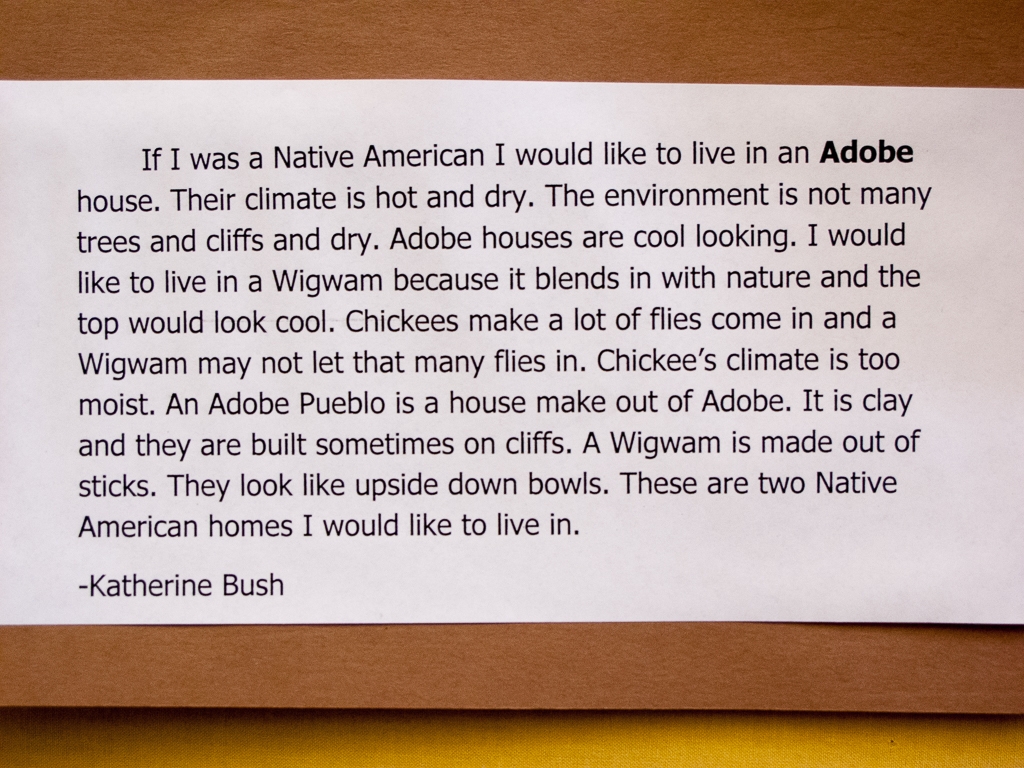 If I was a Native American I would like to live in an Adobe
house. Their climate is hot and dry. The environment is not many
trees and cliffs and dry. Adobe houses are cool looking. I would
like to live in a Wigwam because it blends in with nature and the
top would look cool. Chickees make a lot of flies come in and a
Wigwam may not let that many flies in. Chickee’s climate is too
moist. An Adobe Pueblo is a house make out of Adobe. It is clay
and they are built sometimes on cliffs. A Wigwam is made out of
sticks. They look like upside down bowls. These are two Native
American homes I would like to live in.
-Katherine Bush